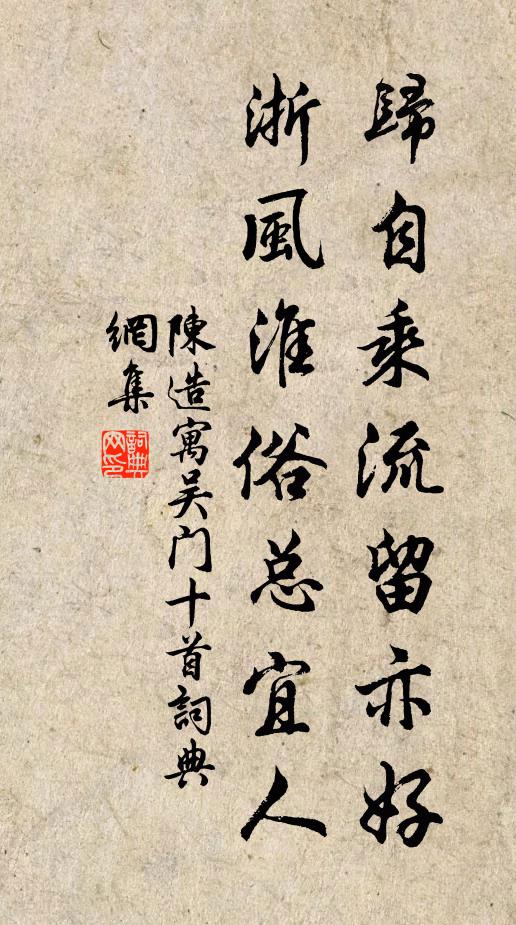 歸自乘流留亦好
浙風淮俗总宜人
陳造寓吴门十首詞典
網集
詞典网印